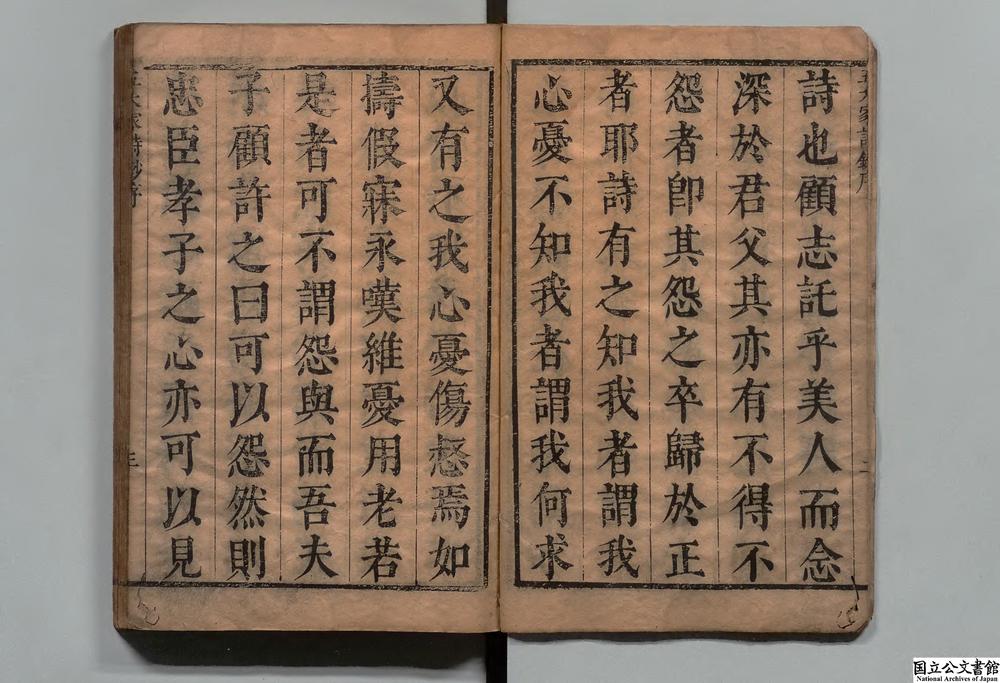 詩也顧志託乎美人而念
深於君父其亦有不得不
怨者卽其怨之卒歸於正
者耶詩有之知我者謂我
心憂不知我者謂我何求
又有之我心憂傷惄焉如
擣假寐永嘆維憂用老若
是者可不謂怨與而吾夫
子顧許之曰可以怨然則
忠臣孝子之心亦可以見
国立公文書館
National Archives of Japan